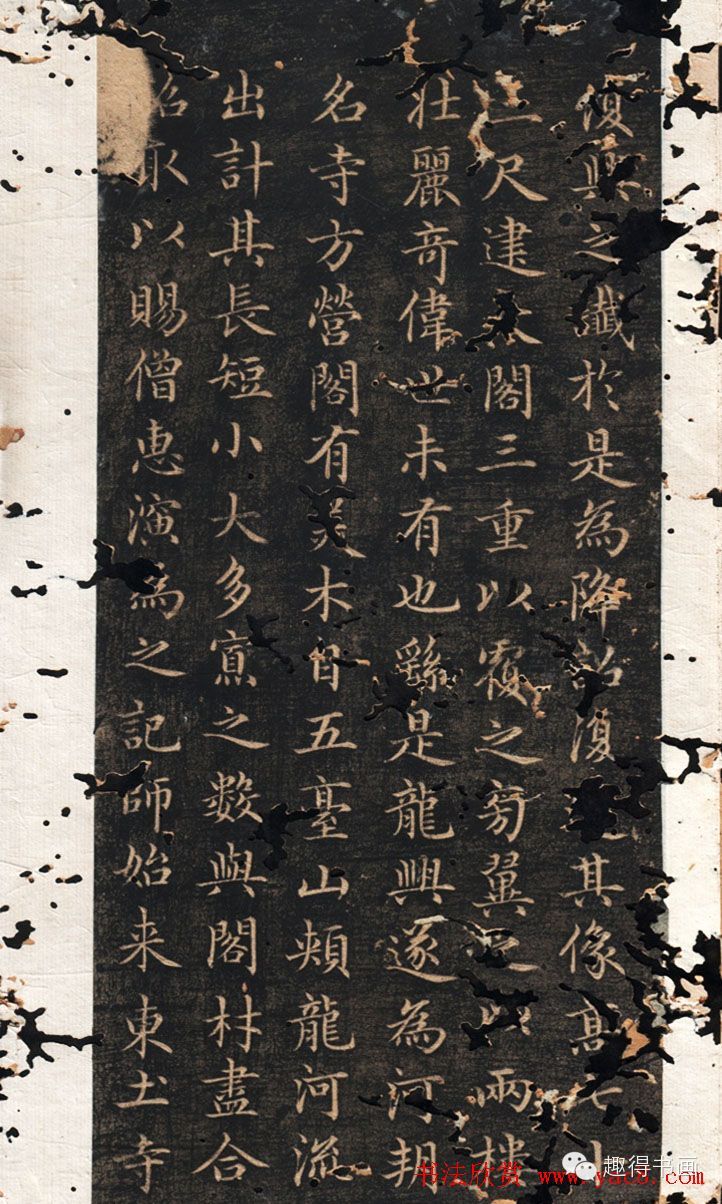 復興之讖於是為降詔復其像髙七
三尺建大閣三重以覆之旁翼之以兩樓
壯麗奇偉世未有也繇是龍興遂為河朔
名寺方營閣有美木自五臺山頰龍河流
出計其長短小大多寡之數與閣材盡合
詔取以賜僧惠演為之記師始来東土寺
趣得书画
书法欣赏 www.yac8.com